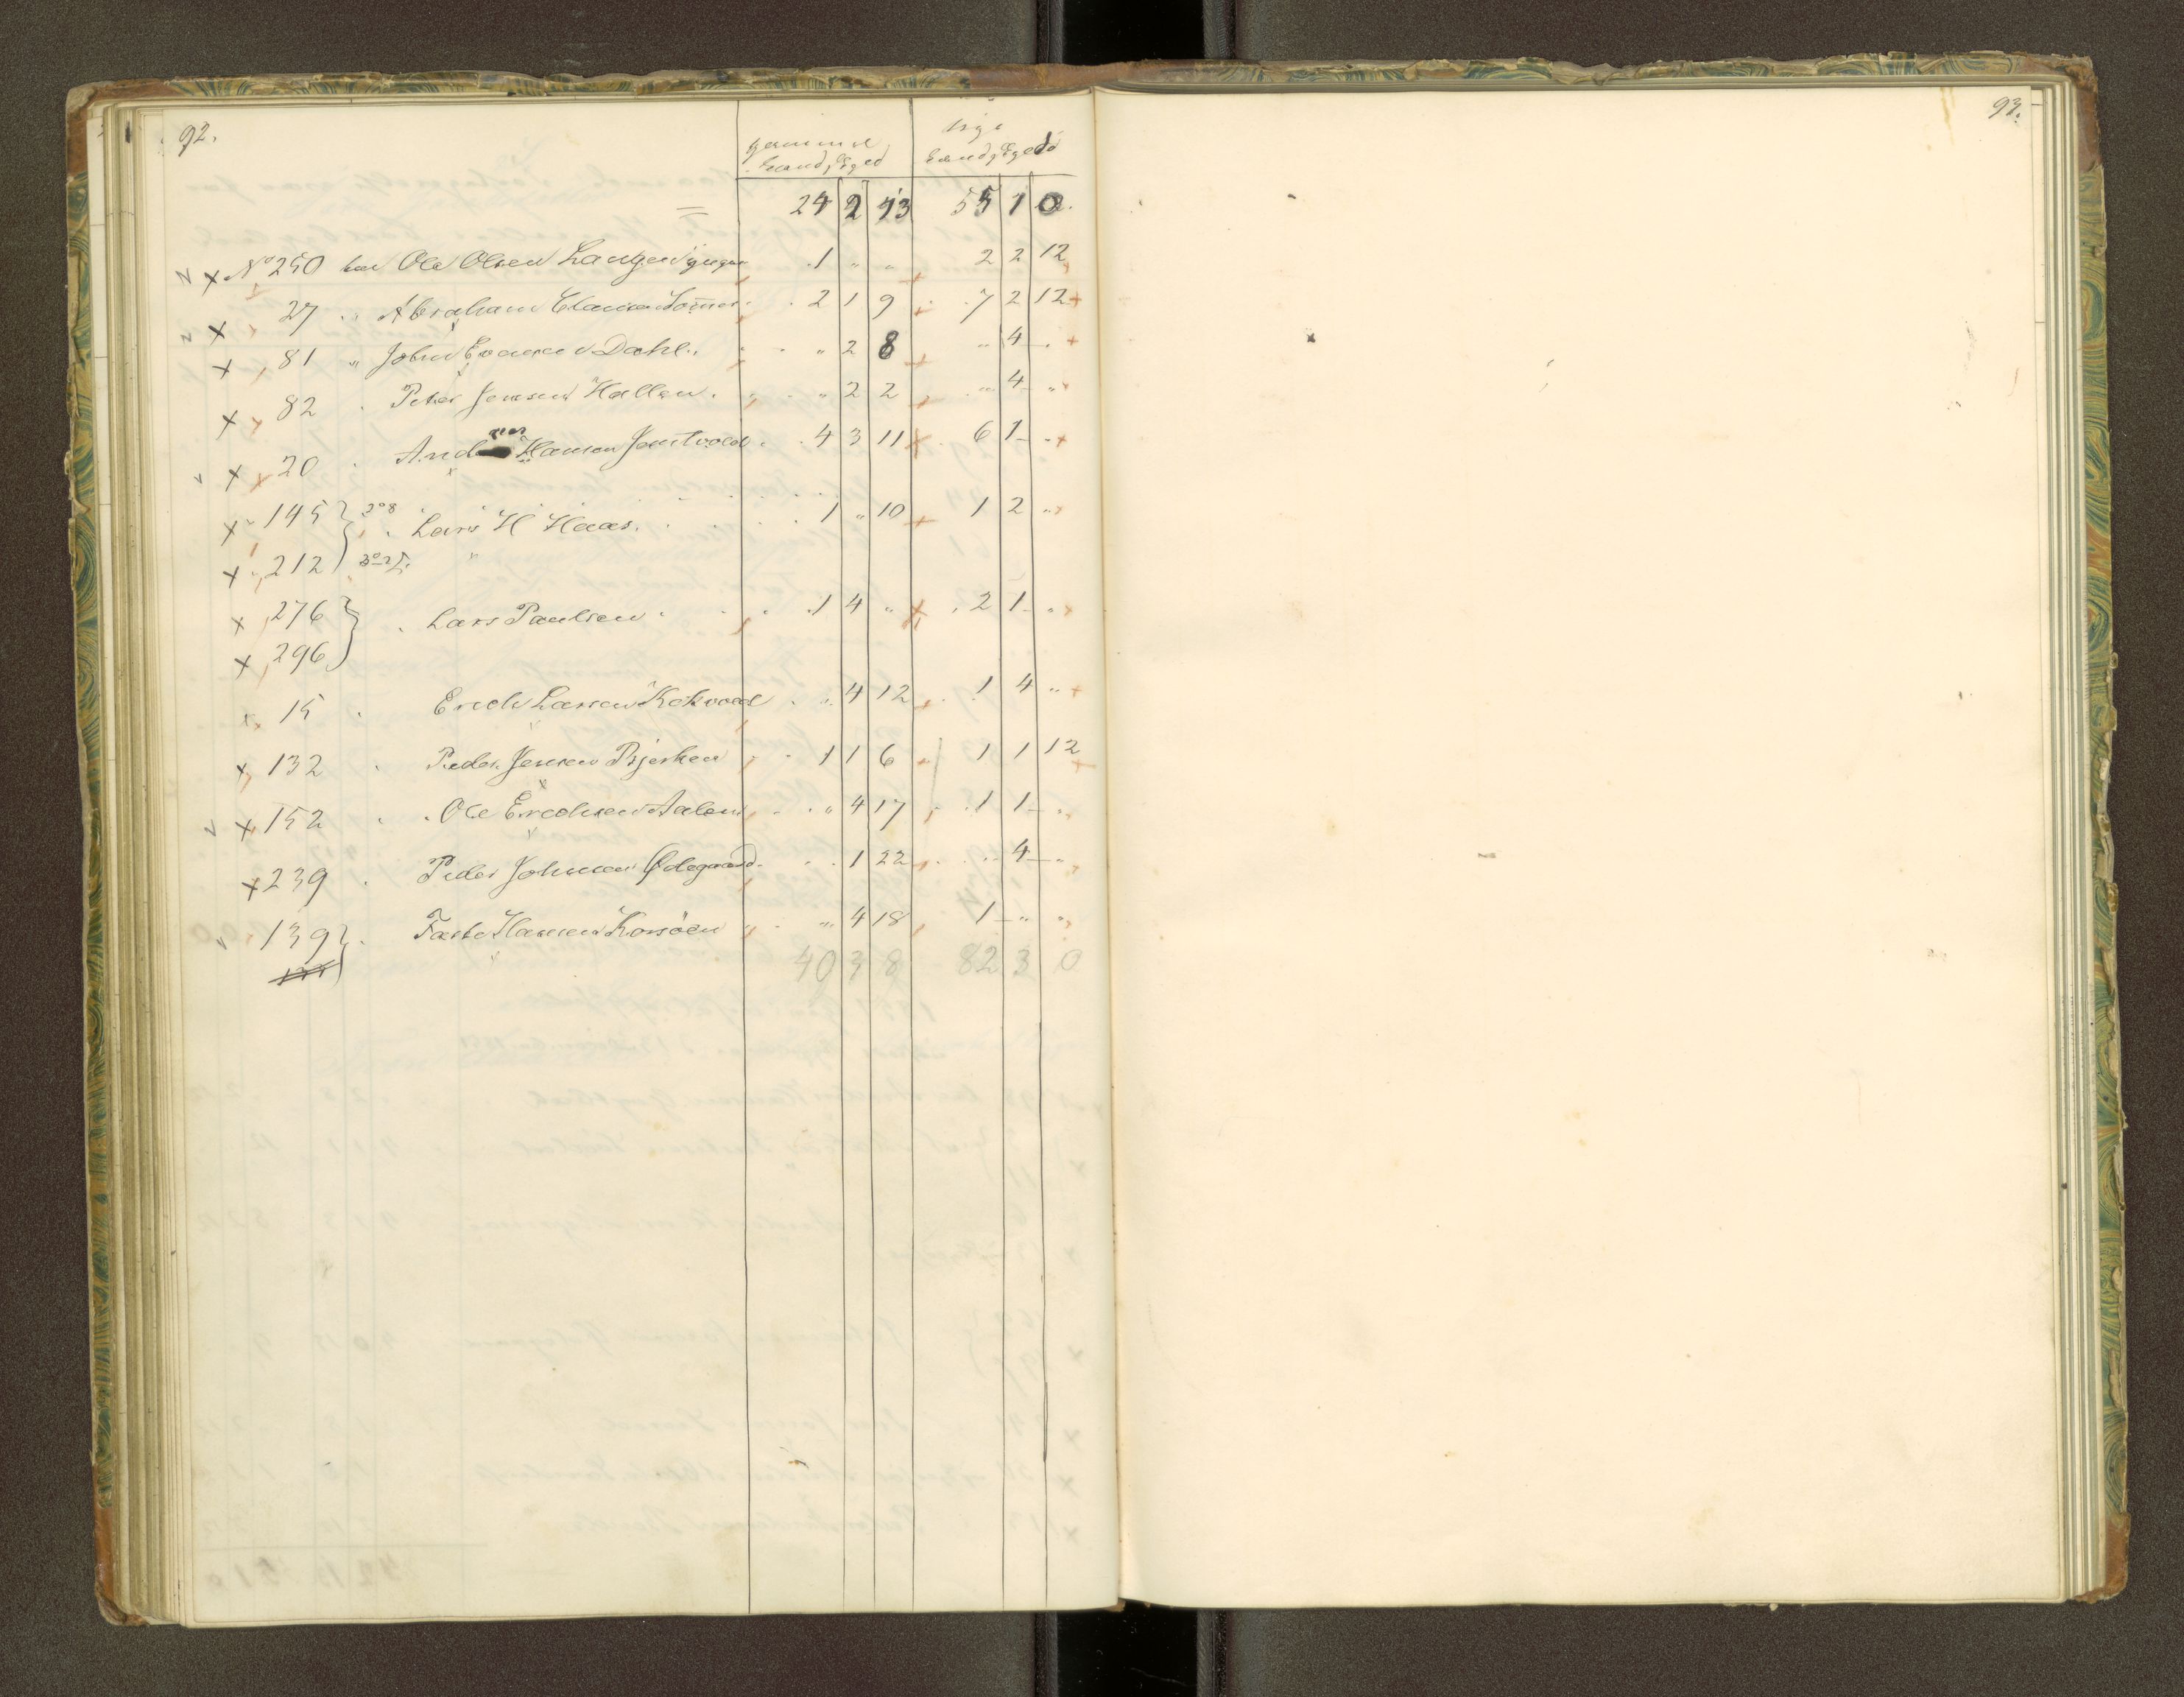 92.
93.
gammel
nye
24 2 13 55 1 0.
No 250 har Ole Olsen Langen 1 " " 2 2 12
27 " Abraham Clausen 2 1 9 7 2 12
81 " John Evensen Dahl " 2 8 " 4 "
82 Peder Jensen Hallen " 2 2 " 4 "
20 Anders Hansen Jemtvold 4 3 11 6 1 "
145 Lars H Haas. 1 " 10 1 2 "
212 "
276 Lars Paulsen 1 4 " 2 1 "
296
15 Erich Larsen Kokvold " 4 12 1 4 "
132 Peder Jensen Bjerken 1 1 6 1 1 12
152 Ole Erichsen Aalen " 4 17 1 1 "
239 Peder Johnsen Ødegaard 1 22 " 4 "
139 Hansen Korsöen " 4 18 1 " "
40 3 8 82 3 0